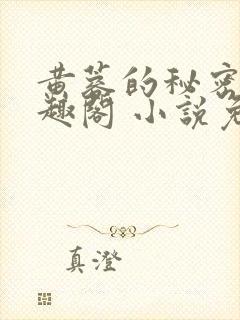 黄蓉的秘密
趣閣 小說免
真澄